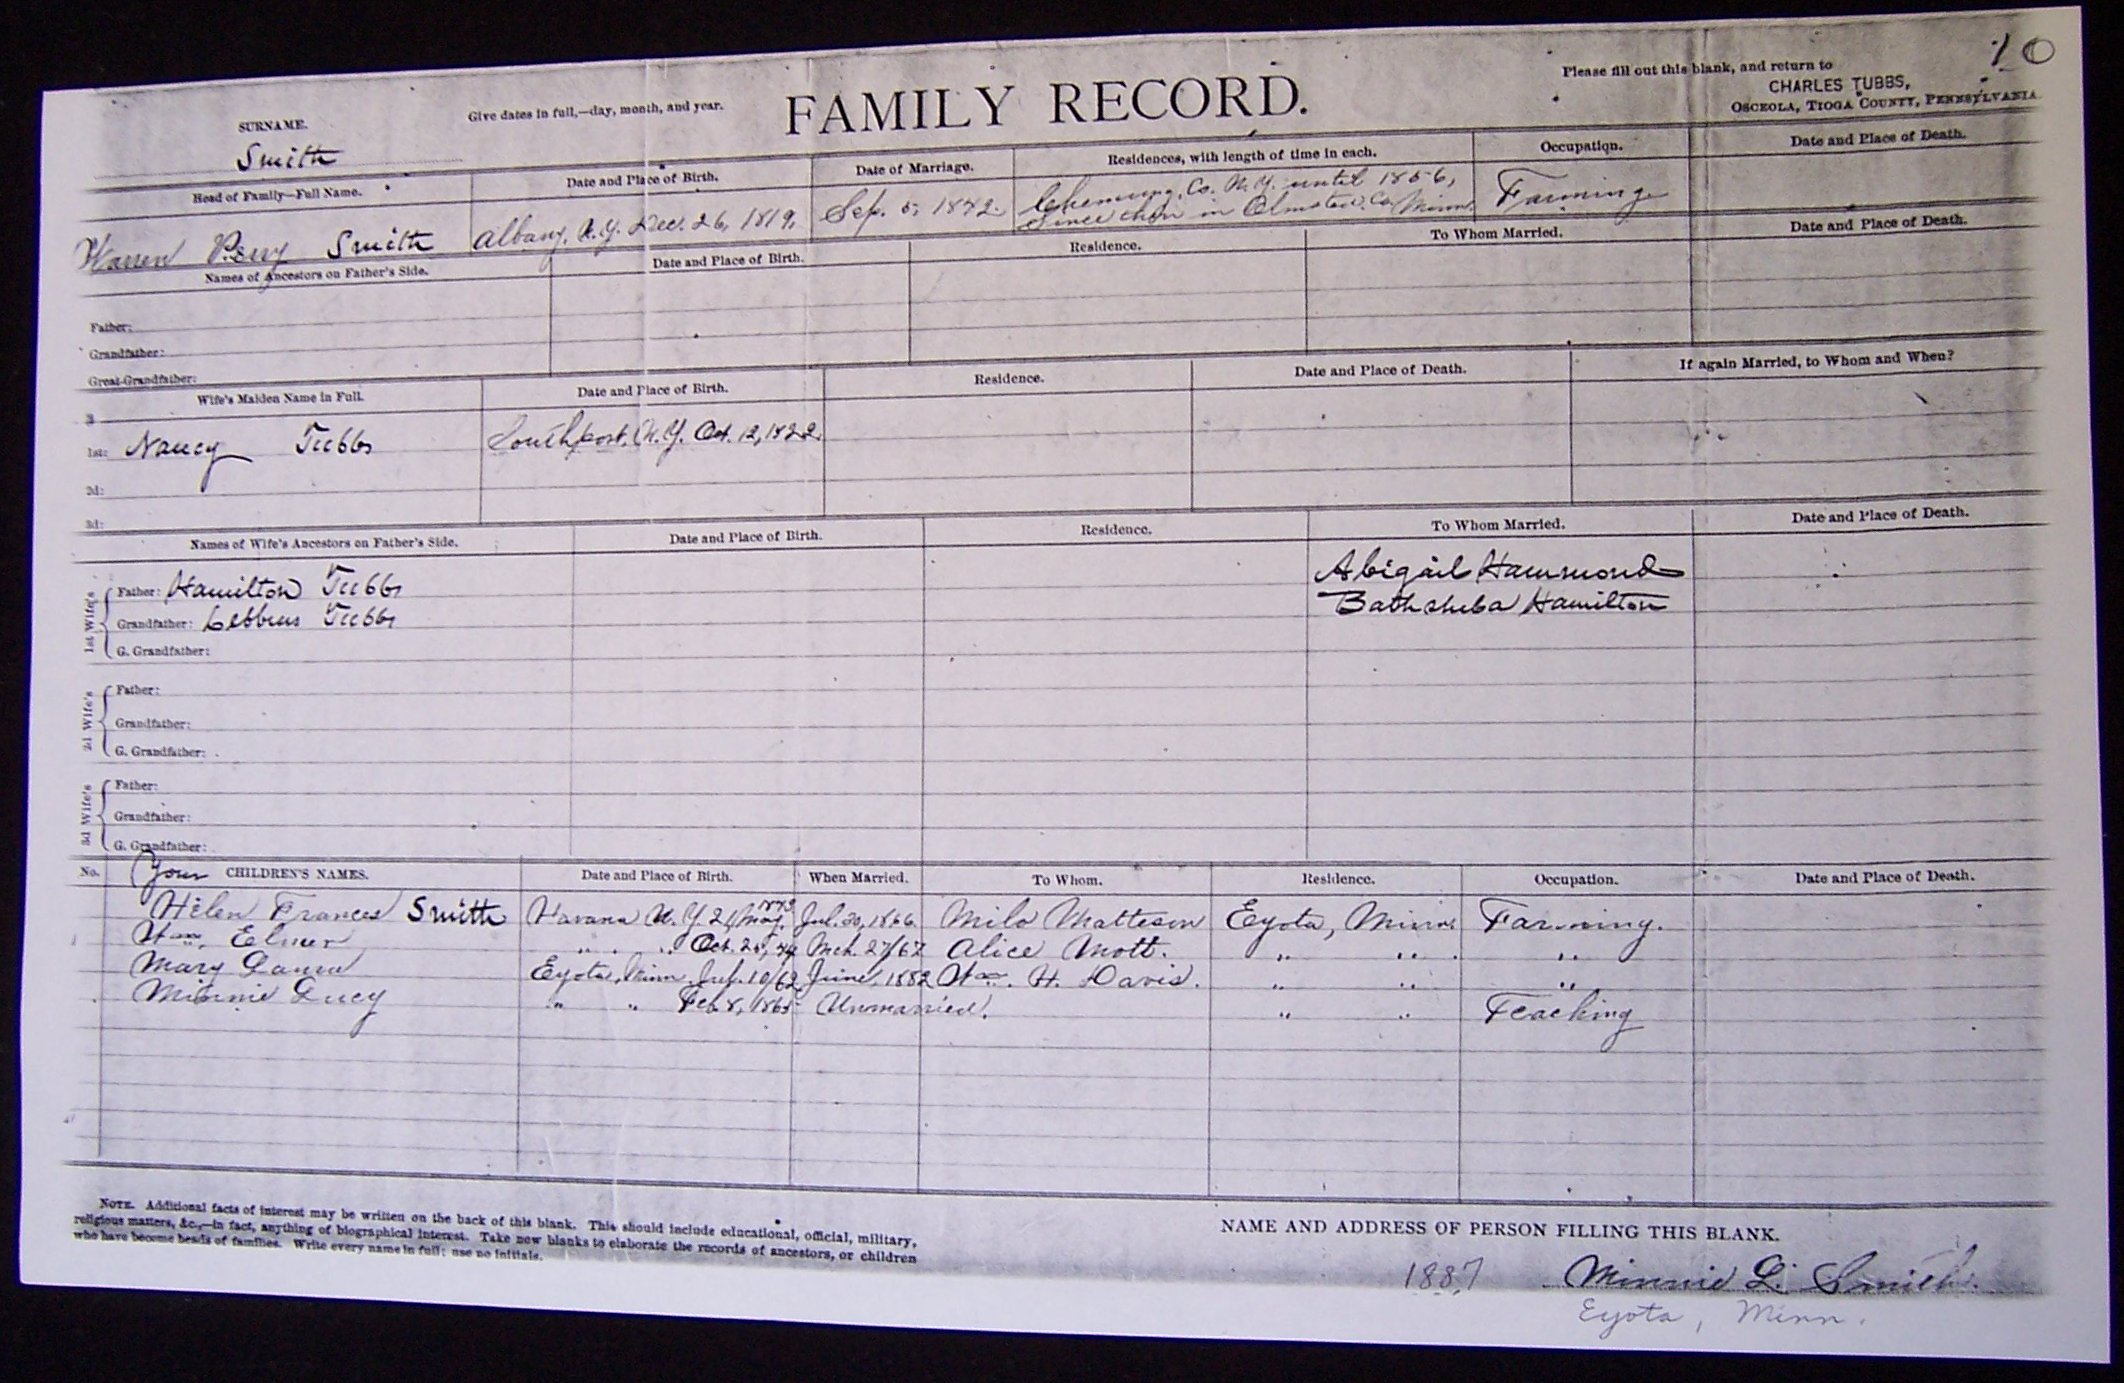 10
Please fill out this blank, and return to
CHARLES TUBBS,
OSCEOLA, TIOGA COUNTY, PENNSYLVANIA
Give dates in full,—day, month, and year.
FAMILY RECORD.
SURNAME.
Smith
Head of Family—Full Name. Date and Place of Birth. Date of Marriage. Residences, with length of time in each. Occupation. Date and Place of Death.
Warren Perry Smith Albany, N.Y. Dec. 26, 1819. Sep. 5, 1842. Chemung, Co. N.Y. until 1856, Farming
Since then in Olmsted, Co. Minn.
Names of Ancestors on Father's Side. Date and Place of Birth. Residence. To Whom Married. Date and Place of Death.
Father:
Grandfather:
Great-Grandfather:
Wife's Maiden Name in Full. Date and Place of Birth. Residence. Date and Place of Death. If again Married, to Whom and When?
1st: Nancy Tubbs Southport, N.Y. Oct. 12, 1822.
2d:
3d:
Names of Wife's Ancestors on Father's Side. Date and Place of Birth. Residence. To Whom Married. Date and Place of Death.
1st Wife's
Father: Hamilton Tubbs Abigail Hammond
Grandfather: Lebbeus Tubbs Bathsheba Hamilton
G. Grandfather:
2d Wife's
Father:
Grandfather:
G. Grandfather:
3d Wife's
Father:
Grandfather:
G. Grandfather:
No. Your CHILDREN'S NAMES. Date and Place of Birth. When Married. To Whom. Residence. Occupation. Date and Place of Death.
Helen Frances Smith Havana N.Y. 21, May, 1843 Jul. 30, 1866. Milo Matteson Eyota, Minn. Farming.
Wm. Elmer " " Oct. 20, 44 Mch. 27/67 Alice Mott. " " "
Mary Laura Eyota, Minn July. 10/62 June, 1882 Wm. H. Davis. " " "
Minnie Lucy " " Feb. 8, 1865 Unmarried. " " Teaching
NOTE. Additional facts of interest may be written on the back of this blank. This should include educational, official, military,
religious matters, &c.,—in fact, anything of biographical interest. Take new blanks to elaborate the records of ancestors, or children
who have become heads of families. Write every name in full; use no initials.
NAME AND ADDRESS OF PERSON FILLING THIS BLANK.
1887 Minnie L. Smith.
Eyota, Minn.